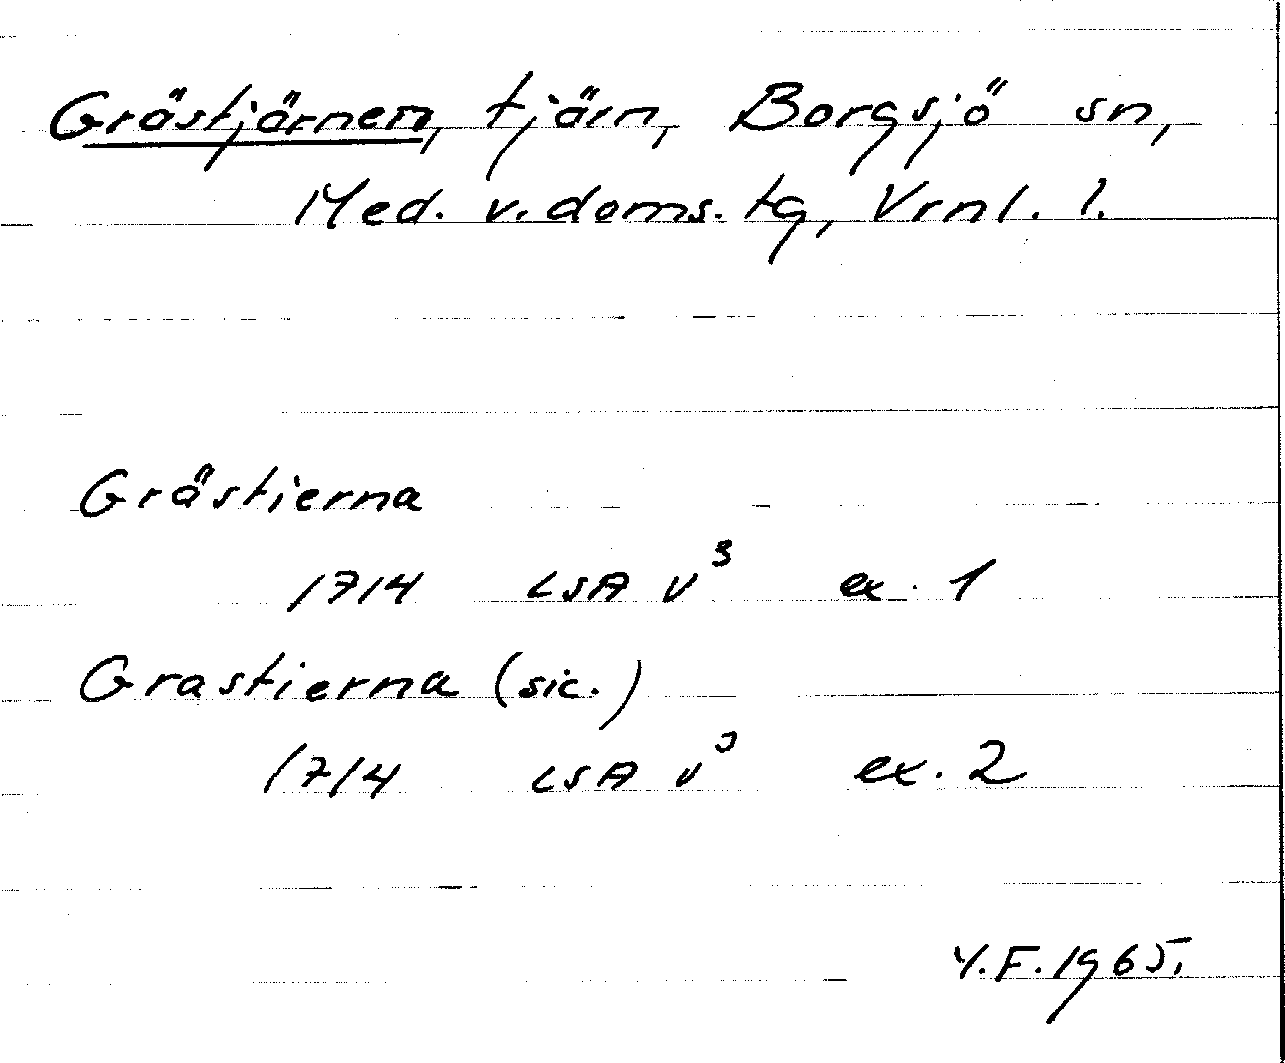 Grästjärnen, tjärn, Borgsjö sn,
Med. v. doms. tg, Vrnl. l.
Grästierna
1714 LSA V³ ex. 1
Grastierna (sic.)
1714 LSA V³ ex. 2
Y.F. 1965.